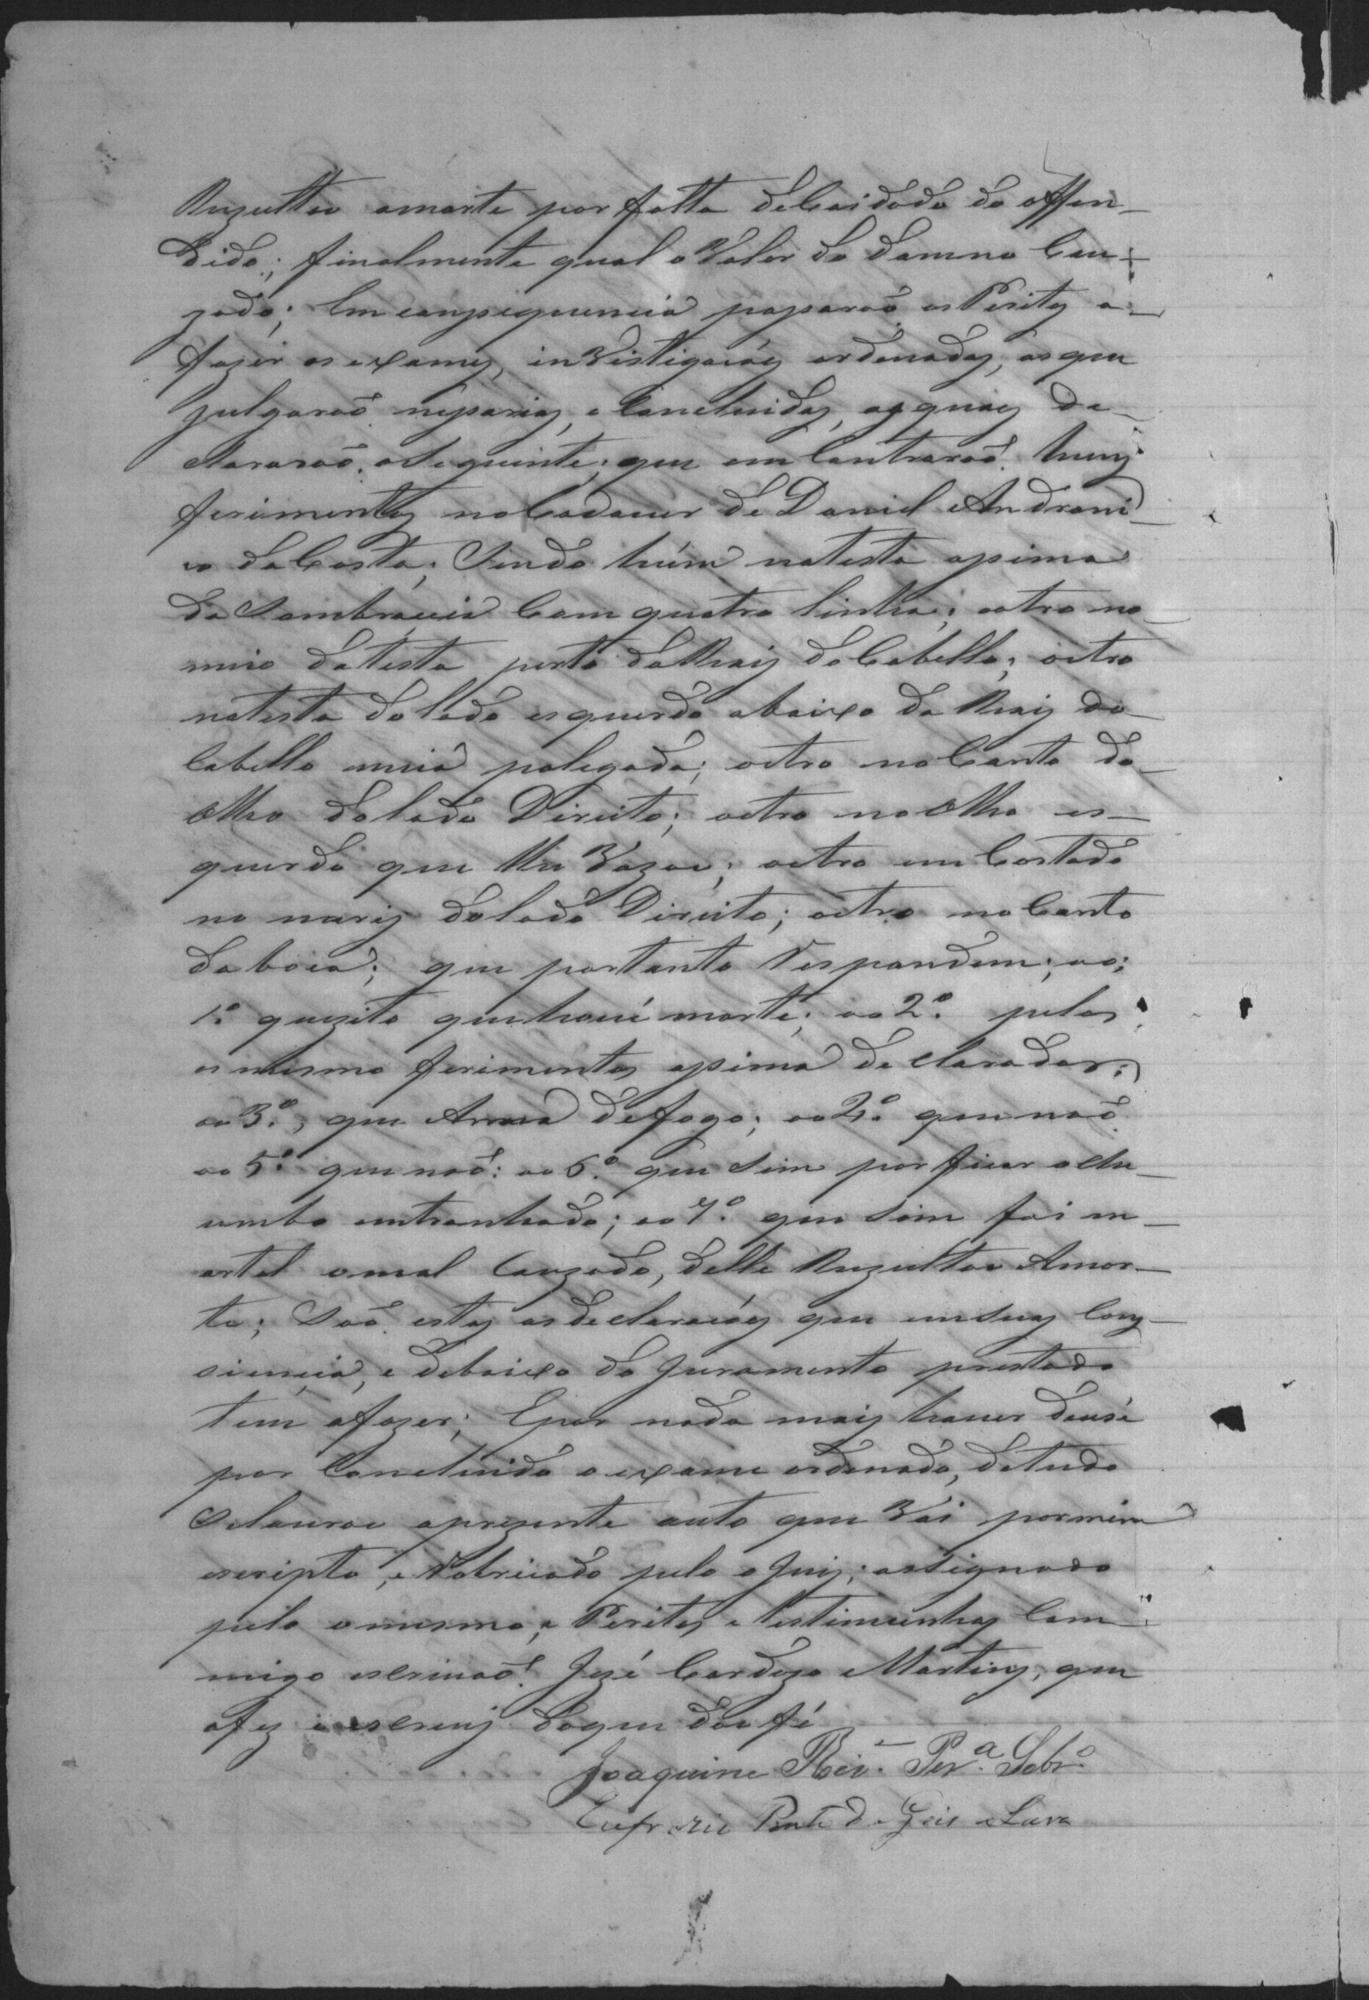 Rezultou amorte por falta decuidado do offen-
dido; finalmente qual o valor do damno cau-
zado; Em conseguencia passaraõ os Peritos a
fazer os exames, investigacões ordenadas, as que
julgaraõ nesparias, e Concluidas, as quaes de-
clararaõ oseguinte; que em Contraraõ huns
ferimentos noCadaver de Daniel Androni-
co daCosta; Sendo húm natesta asima
da Sombrancia Com quatro linha; outro no
meio datesta perto daRais doCabello; outro
natesta dolado esquerdo abaixo da Rais do
Cabello meia polegada; outro noCanto do
Olho dolado Direito; outro no Olho es-
querdo que lhe vazou; outro em Costado
no naris dolado Direito; outro noCanto
daboca; que portanto Respondem; ao;
1º quezito quehouve morte; ao 2º pelos
os mesmo ferimentos asima declarados;
ao 3º, que Arma defogo; ao 4º que naõ
ao 5º que naõ: ao 6º que sim por ficar o chu-
umbo entranhado; ao 7º que sim foi m-
ortal omal Cauzado, delle Rezultou Amor-
te; Saõ estas asdeclaracões que emsuas Cons-
siencia, e debaixo do Juramento prestado
tem afazer; Epor nada mais haver deuse
por Concluido o exame ordenado, detudo
selavrou aprezente auto que vai pormim
escripto, e Robricado pelo o Juis; assignado
pelo omesmo, e Peritos e testimunhas Com
migo escrivaõ José Cardozo Martins, que
ofiz e escrevi doque dou fé
Joaquim Rib. Per.ª Sobr.º